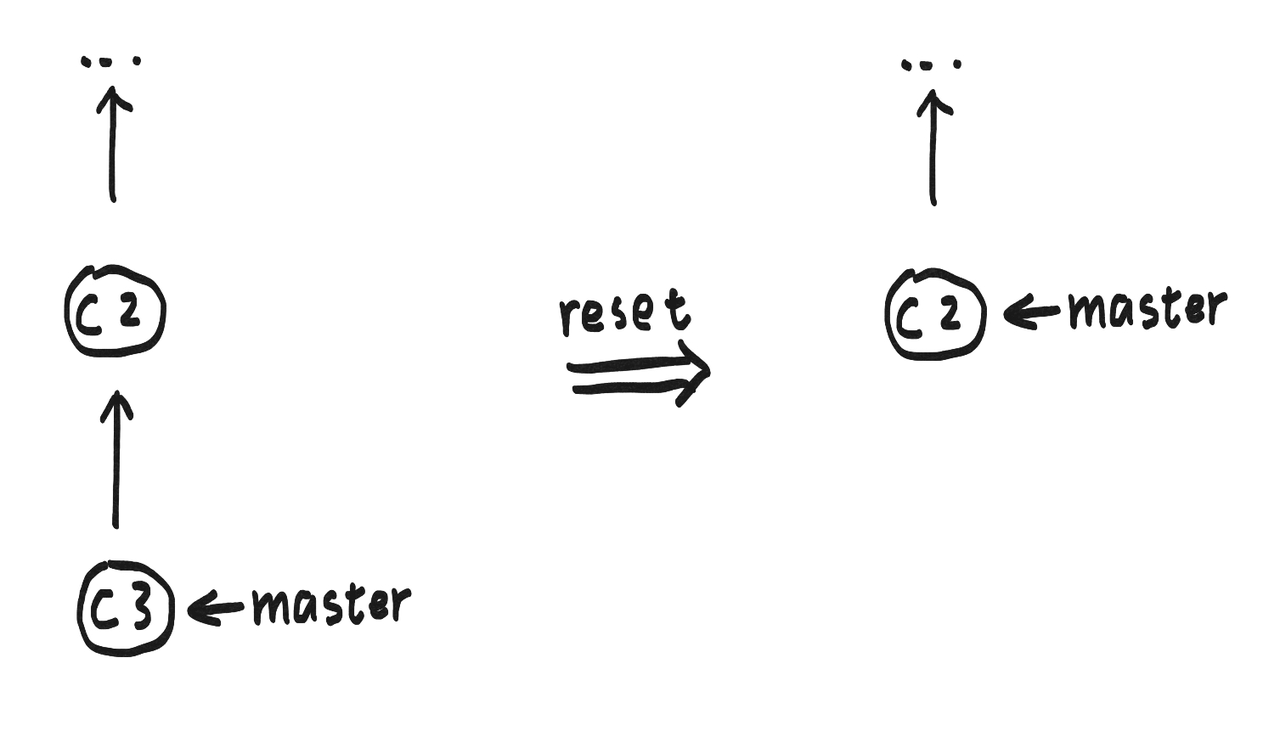 ...
C2
C3
master
reset
...
C2
master